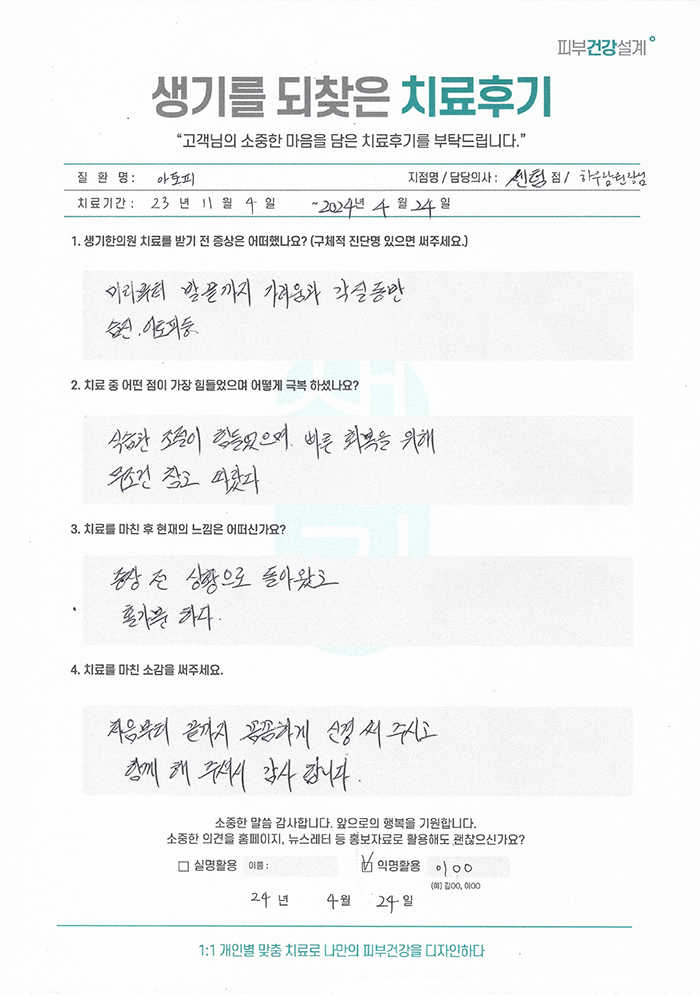 피부건강설계
생기를 되찾은 치료후기
“고객님의 소중한 마음을 담은 치료후기를 부탁드립니다.”
질 환 명 : 아토피 지점명 / 담당의사 : 센텀 점 / 하우람원장님
치료기간 : 23 년 11 월 4 일 ~2024년 4 월 24 일
1. 생기한의원 치료를 받기 전 증상은 어떠했나요? (구체적 진단명 있으면 써주세요.)
머리부터 발끝까지 가려움과 각질동반
습진. 아토피등
2. 치료 중 어떤 점이 가장 힘들었으며 어떻게 극복 하셨나요?
식습관 조절이 힘들었으며. 빠른 회복을 위해
무조건 참고 따랐다
3. 치료를 마친 후 현재의 느낌은 어떠신가요?
증상 전 상황으로 돌아왔고
홀가분 하다.
4. 치료를 마친 소감을 써주세요.
처음부터 끝까지 꼼꼼하게 신경 써 주시고
함께 해 주셔서 감사 합니다.
소중한 말씀 감사합니다. 앞으로의 행복을 기원합니다.
소중한 의견을 홈페이지, 뉴스레터 등 홍보자료로 활용해도 괜찮으신가요?
□ 실명활용 이름 : ☑ 익명활용 이00
(예) 김OO, 이OO
24 년 4월 24일
1:1 개인별 맞춤 치료로 나만의 피부건강을 디자인하다